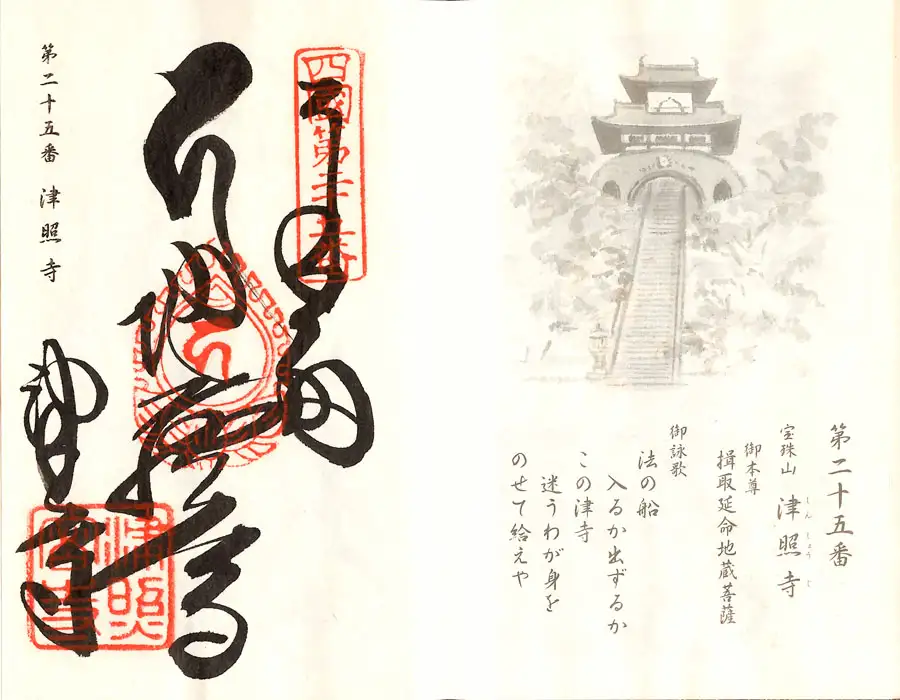 第二十五番
宝珠山 津照寺
しんしょうじ
御本尊
揖取延命地蔵菩薩
御詠歌
法の船
入るか出ずるか
この津寺
迷うわが身を
のせて給えや
四國第二十五番
第二十五番 津照寺